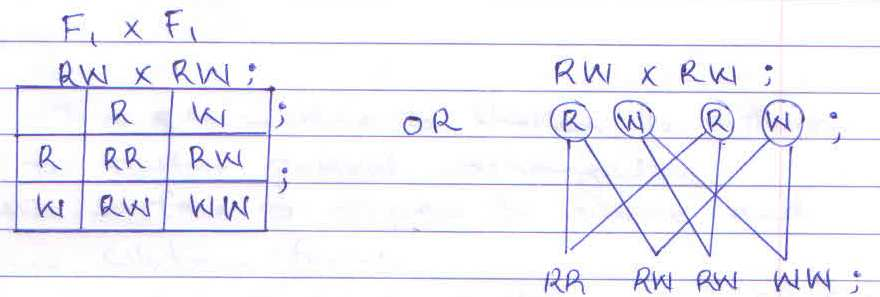 F₁ x F₁
RW x RW ;
R W ;
R RR RW
W RW WW ;
OR
RW x RW ;
R W R W ;
RR RW RW WW ;